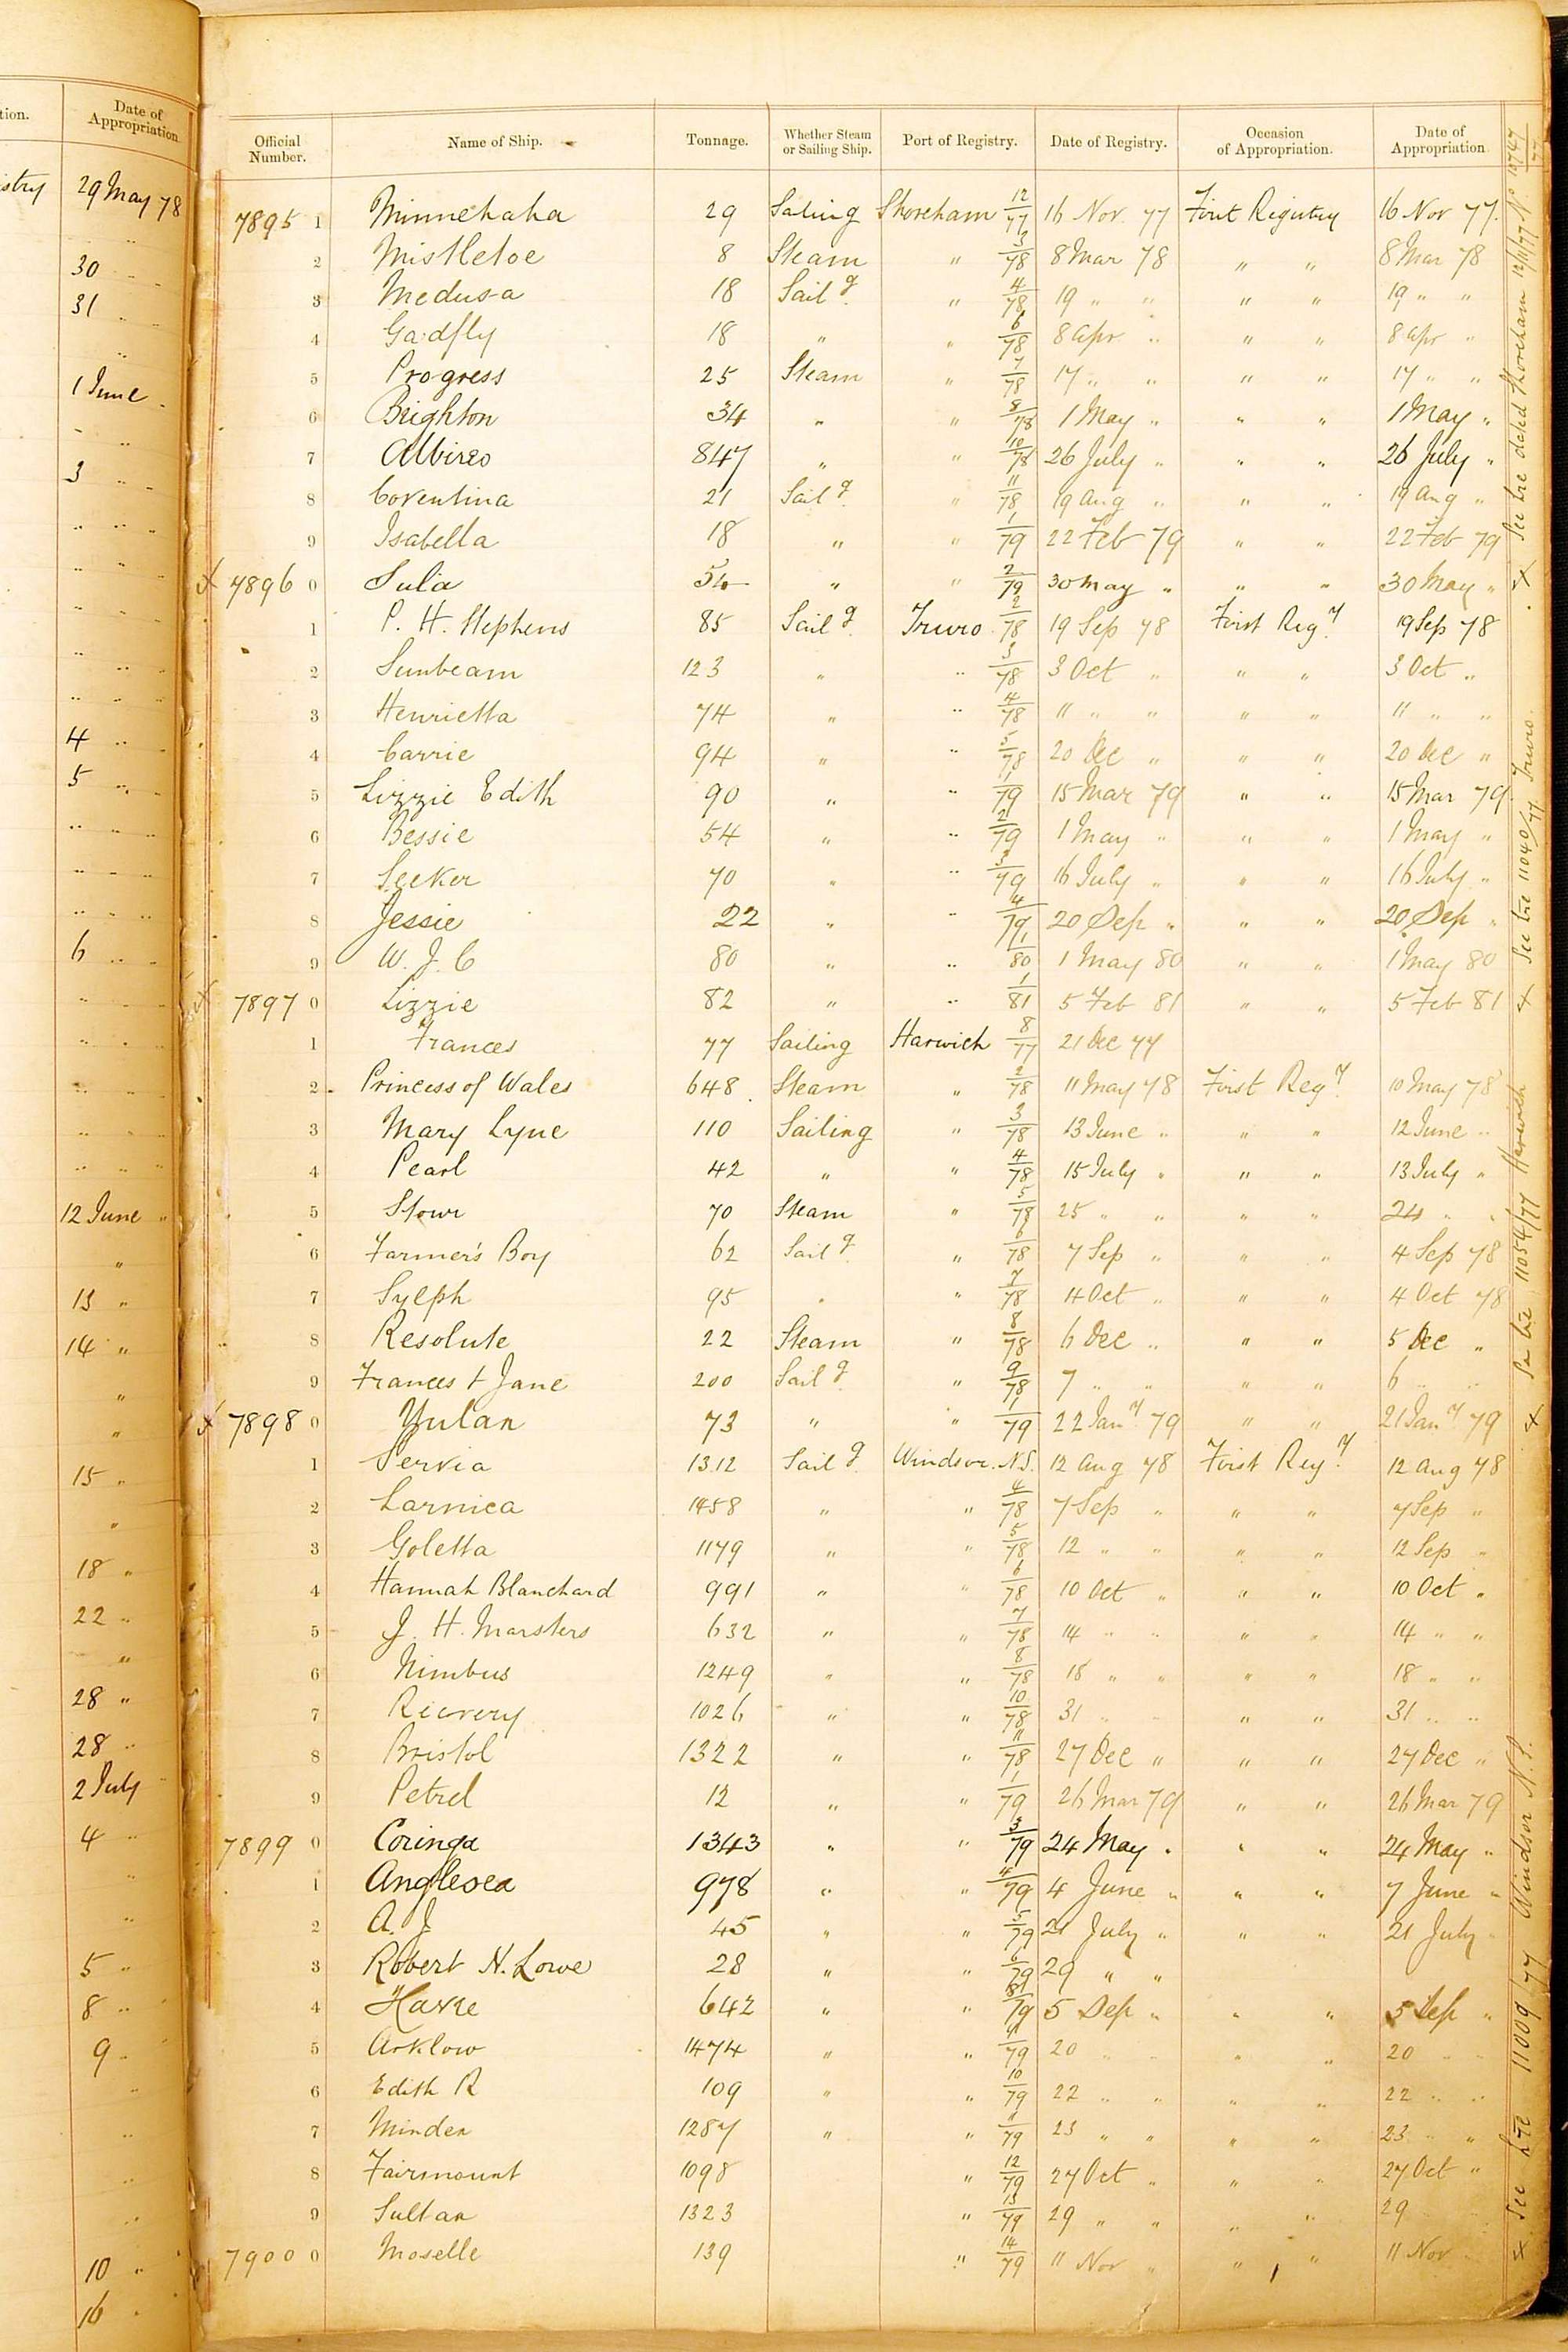 tion.
Date of
Appropriation
istry 29 May 78
" "
30 " "
31 " "
"
1 June "
" "
3 " "
" " "
" " "
" " "
" " "
" " "
4 " "
5 " "
" " "
" " "
" " "
6 " "
" " "
" " "
" " "
" " "
" " "
12 June "
"
13 "
14 "
"
"
15 "
"
18 "
22 "
"
28 "
28 "
2 July
4 "
"
"
5 "
8 "
9 "
"
"
"
"
10 "
16 "
Official Number. Name of Ship. Tonnage. Whether Steam or Sailing Ship. Port of Registry. Date of Registry. Occasion of Appropriation. Date of Appropriation
7895 1 Minnehaha 29 Sailing Shoreham 12/77 16 Nov 77 First Registry 16 Nov 77.
2 Mistletoe 8 Steam " 3/78 8 Mar 78 " " 8 Mar 78
3 Medusa 18 Sailg. " 4/78 19 " " " " 19 " "
4 Gadfly 18 " " 6/78 8 Apr " " " 8 Apr "
5 Progress 25 Steam " 7/78 17 " " " " 17 " "
6 Brighton 34 " " 8/78 1 May " " " 1 May "
7 Albireo 847 " " 10/78 26 July " " " 26 July "
8 Coventina 21 Sailg. " 11/78 19 Aug " " " 19 Aug "
9 Isabella 18 " " 1/79 22 Feb 79 " " 22 Feb 79
x 7896 0 Sula 54 " " 2/79 30 May " " " 30 May "
1 P. H. Stephens 85 Sailg. Truro 2/78 19 Sep 78 First Regy. 19 Sep 78
2 Sunbeam 123 " " 3/78 3 Oct " " " 3 Oct "
3 Henrietta 74 " " 4/78 11 " " " " 11 " "
4 Carrie 94 " " 5/78 20 Dec " " " 20 Dec "
5 Lizzie Edith 90 " " 1/79 15 Mar 79 " " 15 Mar 79
6 Bessie 54 " " 2/79 1 May " " " 1 May "
7 Seeker 70 " " 3/79 16 July " " " 16 July "
8 Jessie 22 " " 4/79 20 Sep " " " 20 Sep "
9 W. J. C 80 " " 1/80 1 May 80 " " 1 May 80
x 7897 0 Lizzie 82 " " 1/81 5 Feb 81 " " 5 Feb 81
1 Frances 77 Sailing Harwich 8/77 21 Dec 77
2 Princess of Wales 648 Steam " 2/78 11 May 78 First Regy. 10 May 78
3 Mary Lyne 110 Sailing " 3/78 13 June " " " 12 June "
4 Pearl 42 " " 4/78 15 July " " " 13 July "
5 Stour 70 Steam " 5/78 25 " " " " 24 " "
6 Farmer's Boy 62 Sailg " 6/78 7 Sep " " " 4 Sep 78
7 Sylph 95 " " 7/78 4 Oct " " " 4 Oct 78
8 Resolute 22 Steam " 8/78 6 Dec " " " 5 Dec "
9 Frances & Jane 200 Sailg. " 9/78 7 " " " " 6 " "
x 7898 0 Yulan 73 " " 1/79 22 Jany 79 " " 21 Jany 79
1 Servia 1312 Sailg. Windsor. N.S. 12 Aug 78 First Regy. 12 Aug 78
2 Larnica 1458 " " 4/78 7 Sep " " " 7 Sep "
3 Goletta 1179 " " 5/78 12 " " " " 12 Sep "
4 Hannah Blanchard 991 " " 6/78 10 Oct " " " 10 Oct "
5 J. H. Marsters 632 " " 7/78 14 " " " " 14 " "
6 Nimbus 1249 " " 8/78 18 " " " " 18 " "
7 Recovery 1026 " " 10/78 31 " " " " 31 " "
8 Bristol 1322 " " 11/78 27 Dec " " " 27 Dec "
9 Petrel 12 " " 1/79 26 Mar 79 " " 26 Mar 79
7899 0 Coringa 1343 " " 3/79 24 May " " " 24 May "
1 Anglesea 978 " " 4/79 4 June " " " 7 June "
2 A. J 45 " " 5/79 21 July " " " 21 July "
3 Robert N. Lowe 28 " " 6/79 29 " "
4 Havre 642 " " 8/79 5 Sep " " " 5 Sep "
5 Arklow 1474 " " 9/79 20 " " " " 20 " "
6 Edith R 109 " " 10/79 22 " " " " 22 " "
7 Minden 1287 " " 11/79 23 " " " " 23 " "
8 Fairmount 1098 " 12/79 27 Oct " " " 27 Oct "
9 Sultan 1323 " 13/79 29 " " " " 29
7900 0 Moselle 139 " 14/79 11 Nov " " " 11 Nov
x See Lre dated Shoreham 12/11/77 No 10747/77
x See Lre 11040/77 Truro.
x See Lre 11054/77 Harwich
x See Lre 11009/77 Windsor N.S.